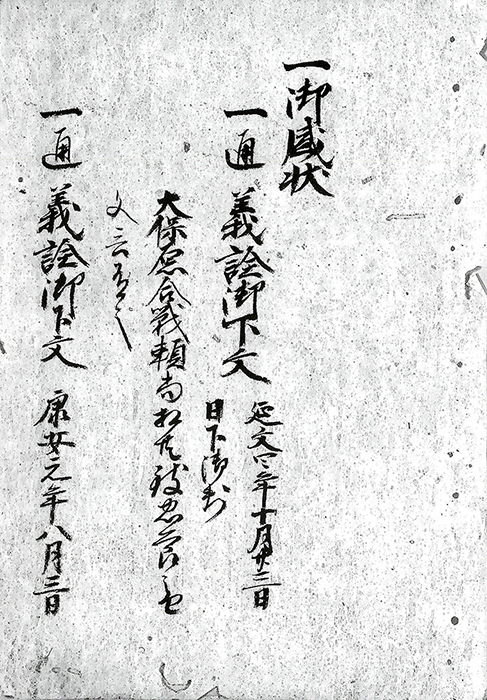 一御感状
一通 義詮御下文 延文四年十月廿三日
日下御判
大保原合戦頼尚相共致忠節之由
文言有之
一通 義詮御下文 康安元年八月三日